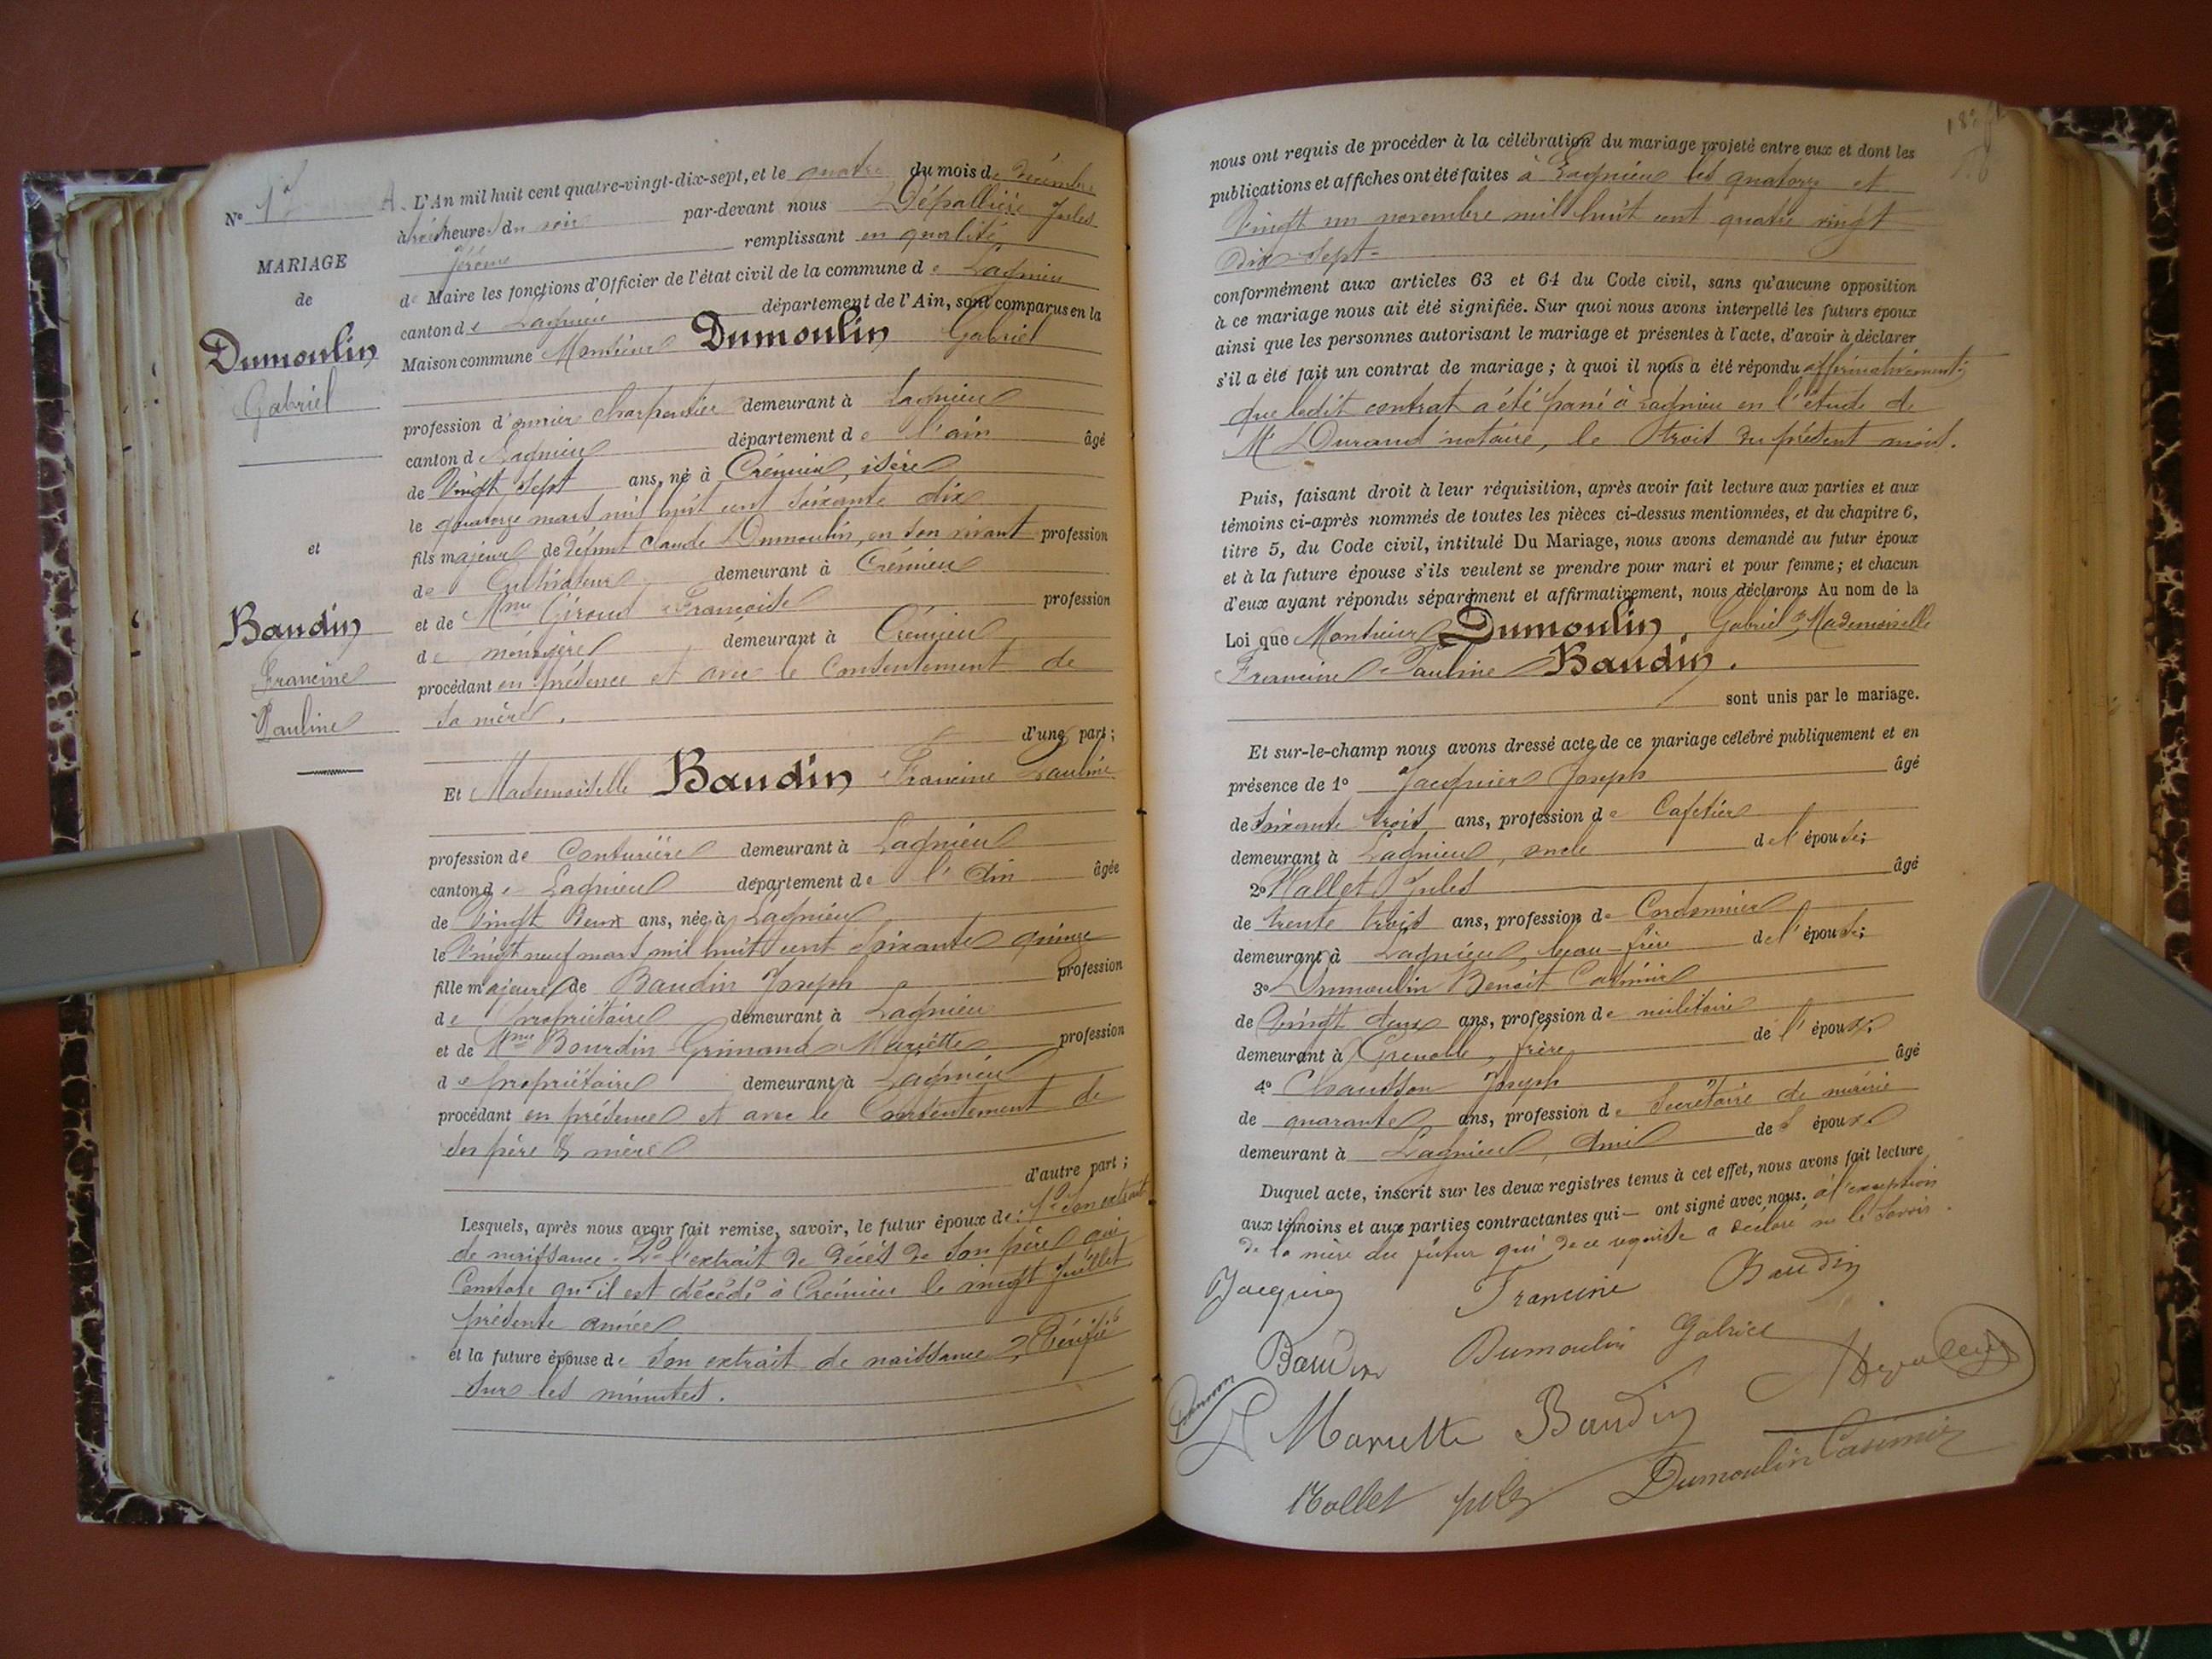 N° 17
MARIAGE
de
Dumoulin
Gabriel
et
Baudin
Francine
Pauline
L'An mil huit cent quatre-vingt-dix-sept, et le quatre du mois de Décembre
à trois heures du soir par-devant nous Dépallière Jules
Jérôme remplissant en qualité
de Maire les fonctions d'Officier de l'état civil de la commune de Lagnieu
canton de Lagnieu département de l'Ain, sont comparus en la
Maison commune Monsieur Dumoulin Gabriel
profession d'ouvrier charpentier demeurant à Lagnieu
canton de Lagnieu département de l'ain âgé
de Vingt sept ans, né à Crémieu, isère
le quatorze mars mil huit cent soixante dix
fils majeur de défunt Claude Dumoulin, en son vivant profession
de Cultivateur demeurant à Crémieu
et de Mme Giroud Françoise profession
de ménagère demeurant à Crémieu
procédant en présence et avec le Consentement de
sa mère.
d'une part;
Et Mademoiselle Baudin Francine Pauline
profession de Couturière demeurant à Lagnieu
canton de Lagnieu département de l'Ain âgée
de Vingt deux ans, née à Lagnieu
le Vingt neuf mars mil huit cent soixante quinze
fille majeure de Baudin Joseph profession
de propriétaire demeurant à Lagnieu
et de Mme Bourdin-Grimaud Mariette profession
de propriétaire demeurant à Lagnieu
procédant en présence et avec le Consentement de
ses père & mère
d'autre part;
Lesquels, après nous avoir fait remise, savoir, le futur époux de: 1° son extrait
de naissance; 2° l'extrait de décès de son père qui
Constate qu'il est décédé à Crémieu le vingt Juillet
présente année
et la future épouse de son extrait de naissance, Vérifié
sur les minutes.
nous ont requis de procéder à la célébration du mariage projeté entre eux et dont les
publications et affiches ont été faites à Lagnieu les quatorze et
Vingt un novembre mil huit cent quatre vingt
dix-sept=
conformément aux articles 63 et 64 du Code civil, sans qu'aucune opposition
à ce mariage nous ait été signifiée. Sur quoi nous avons interpellé les futurs époux
ainsi que les personnes autorisant le mariage et présentes à l'acte, d'avoir à déclarer
s'il a été fait un contrat de mariage; à quoi il nous a été répondu affirmativement;
que ledit contrat a été passé à Lagnieu en l'étude de
Me Durand notaire, le trois du présent mois.
Puis, faisant droit à leur réquisition, après avoir fait lecture aux parties et aux
témoins ci-après nommés de toutes les pièces ci-dessus mentionnées, et du chapitre 6,
titre 5, du Code civil, intitulé Du Mariage, nous avons demandé au futur époux
et à la future épouse s'ils veulent se prendre pour mari et pour femme; et chacun
d'eux ayant répondu séparément et affirmativement, nous déclarons Au nom de la
Loi que Monsieur Dumoulin, Gabriel & Mademoiselle
Francine Pauline Baudin.
sont unis par le mariage.
Et sur-le-champ nous avons dressé acte de ce mariage célébré publiquement et en
présence de 1° Jacquier Joseph âgé
de soixante trois ans, profession de Cafetier
demeurant à Lagnieu, oncle de l'épouse;
2° Mallet Jules âgé
de trente trois ans, profession de Cordonnier
demeurant à Lagnieu, beau-frère de l'épouse;
3° Dumoulin Benoît Casimir
de Vingt deux ans, profession de militaire
demeurant à Grenoble, frère de l'époux;
4° Chausson Joseph âgé
de quarante ans, profession de Secrétaire de mairie
demeurant à Lagnieu, Ami des époux
Duquel acte, inscrit sur les deux registres tenus à cet effet, nous avons fait lecture
aux témoins et aux parties contractantes qui — ont signé avec nous. à l'exception
de la mère du futur qui de ce requise a déclaré ne le savoir.
Jacquier Francine Baudin
Baudin Dumoulin Gabriel
Mariette Baudin
Mallet jules Dumoulin Casimir